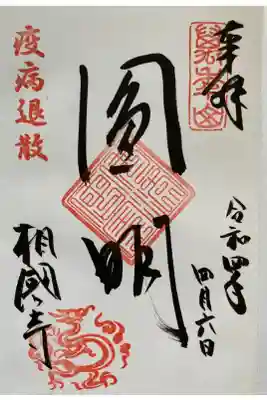 奉拝
令和四年
四月六日
圓明
疫病退散
相國寺